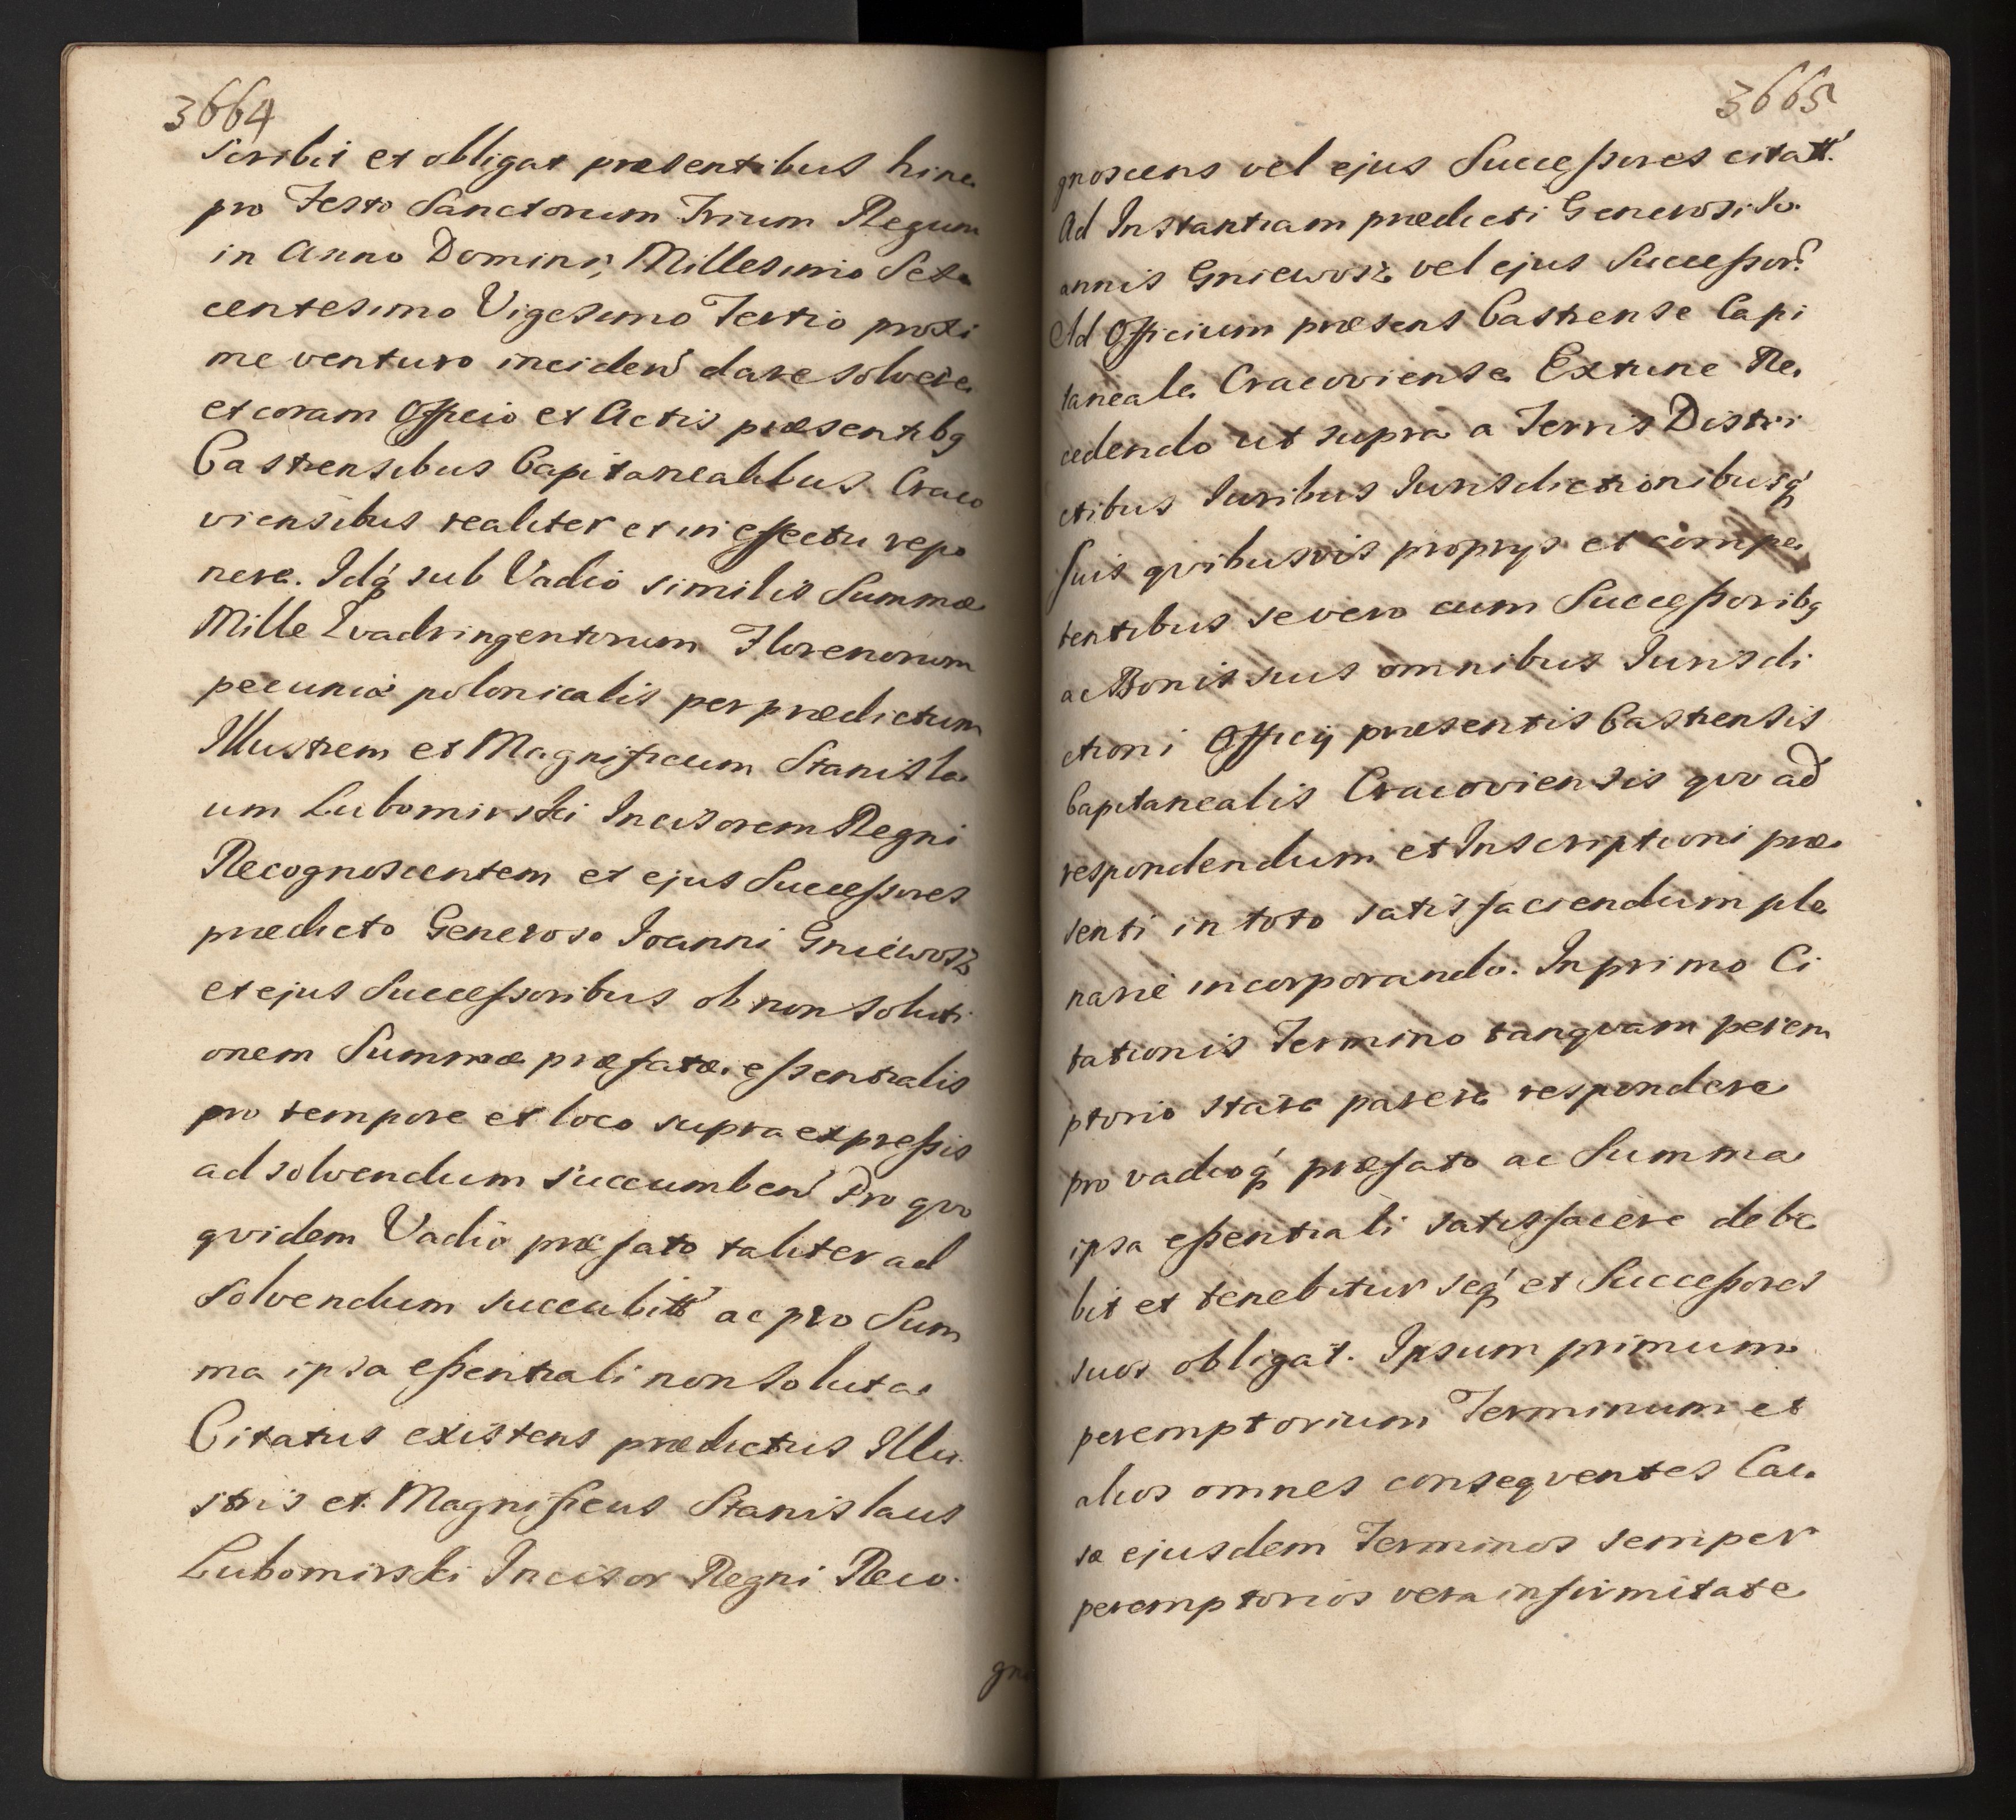 3664
scribit et obligat præsentibus hinc
pro Festo Sanctorum Trium Regum
in Anno Domini, Millesimo Sex
centesimo Vigesimo Tertio proxi
me venturo inciden̄ dare solvere
et coram Officio et Actis præsentibq
Castrensibus Capitanealibus Craco
viensibus realiter et in effectu repo
nere. Idq́ sub Vadio similis Summæ
Mille Qvadringentorum Florenorum
pecuniæ polonicalis per prædictum
Illustrem et Magnificum Stanisla
um Lubomirski Incisorem Regni
Recognoscentem et ejus Successores
prædicto Generoso Joanni Gniewosz
et ejus Successoribus ob non soluti
onem Summæ præfatæ essentialis
pro tempore et loco supra expressis
ad solvendum succumben̄ Pro qvo
qvidem Vadio præfato taliter ad
solvendum succubitt' ac pro Sum
ma ipsa essentiali non soluta
Citatus existens prædictus Illu
stris et Magnificus Stanislaus
Lubomirski Incisor Regni Reco
gno
3665
gnoscens vel ejus Successores citatt'.
Ad Instantiam prædicti Generosi Jo
annis Gniewosz vel ejus Successor'
Ad Officium præsens Castrense Capi
taneale Cracoviense Extunc Re
cedendo ut supra a Terris Distri
ctibus Juribus Jurisdictionibusq́
suis qvibusvis proprys et compe
tentibus se vero cum Successoribq
ac Bonis suis omnibus Jurisdi
ctioni Officij præsentis Castrensis
Capitanealis Cracoviensis qvo ad
respondendum et Inscriptioni præ
senti in toto satisfaciendum ple
narie incorporando. In primo Ci
tationis Termino tanqvam perem
ptorio stare parere respondere
pro vadioq́ præfato ac Summa
ipsa essentiali satisfacere debe
bit et tenebitur seq́ et Successores
suos obligat. Ipsum primum
peremptorium Terminum et
alios omnes conseqventes Cau
sæ ejusdem Terminos semper
peremptorios vera infirmitate